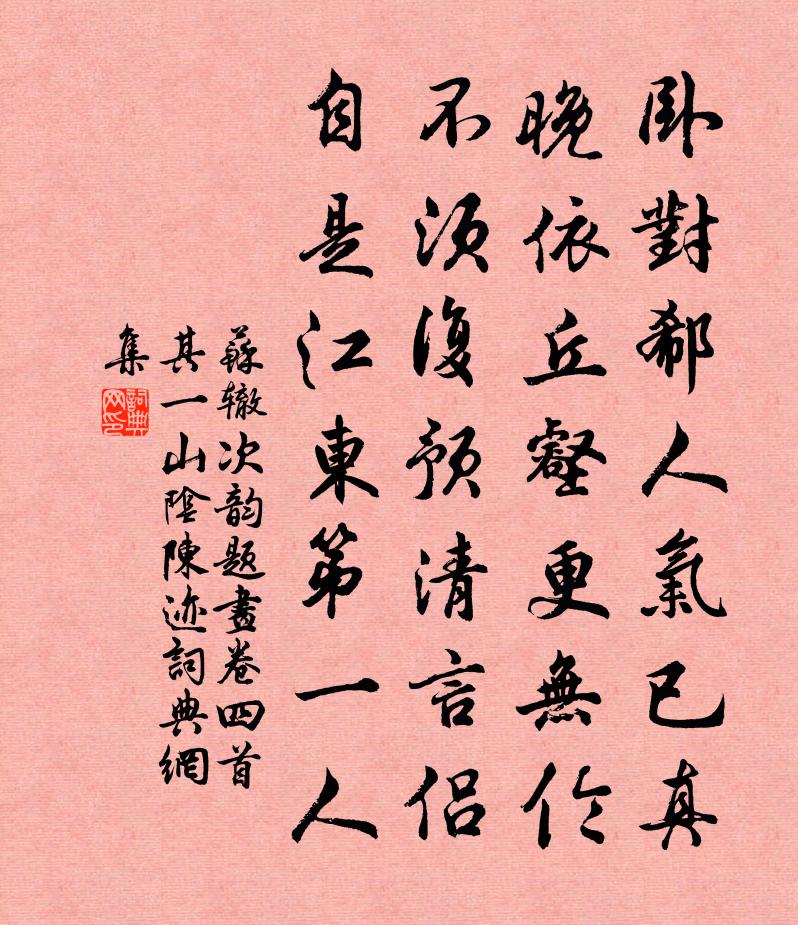 卧對郗人氣已真
晚依丘壑更無伦
不須復預清言侣
自是江東第一人
蘇辙次韵題畫卷四首
其一山陰陳迹詞典網
集
詞典网印